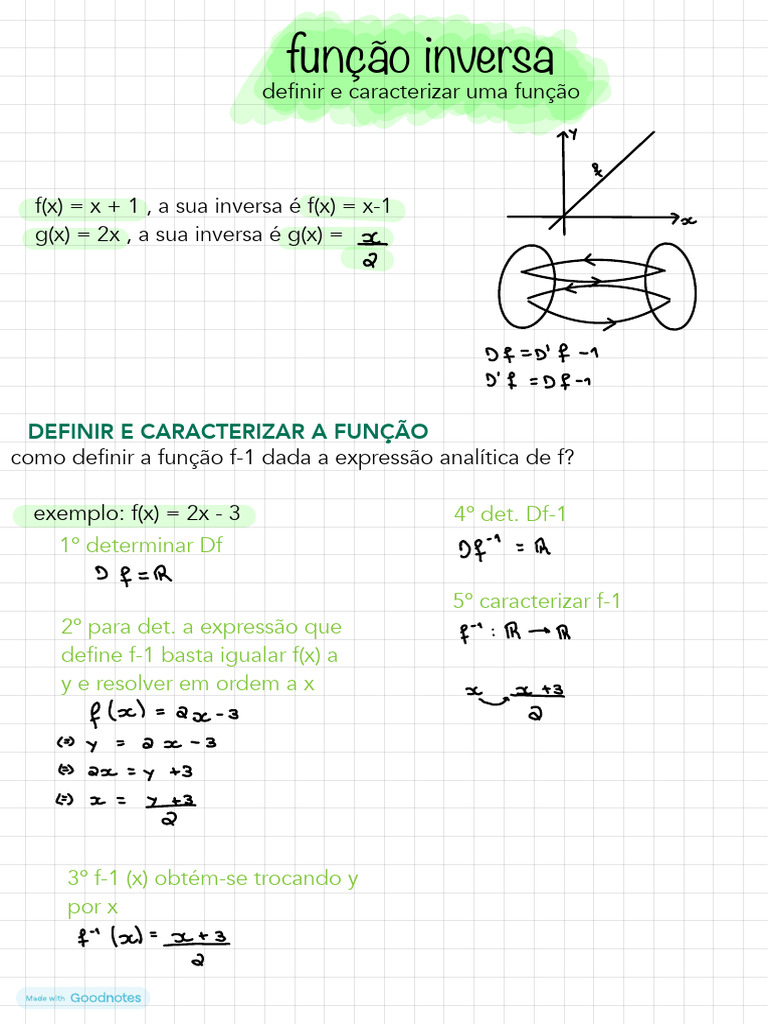 função inversa
definir e caracterizar uma função
y
f
x
f(x) = x + 1 , a sua inversa é f(x) = x-1
g(x) = 2x , a sua inversa é g(x) = x
2
Df = D'f-1
D'f = Df-1
DEFINIR E CARACTERIZAR A FUNÇÃO
como definir a função f-1 dada a expressão analítica de f?
exemplo: f(x) = 2x - 3
1º determinar Df
Df = ℝ
2º para det. a expressão que
define f-1 basta igualar f(x) a
y e resolver em ordem a x
f(x) = 2x - 3
(=) y = 2x - 3
(=) 2x = y + 3
(=) x = y + 3
2
3º f-1 (x) obtém-se trocando y
por x
f⁻¹(x) = x + 3
2
4º det. Df-1
Df⁻¹ = ℝ
5º caracterizar f-1
f⁻¹ : ℝ → ℝ
x x + 3
2
Made with Goodnotes